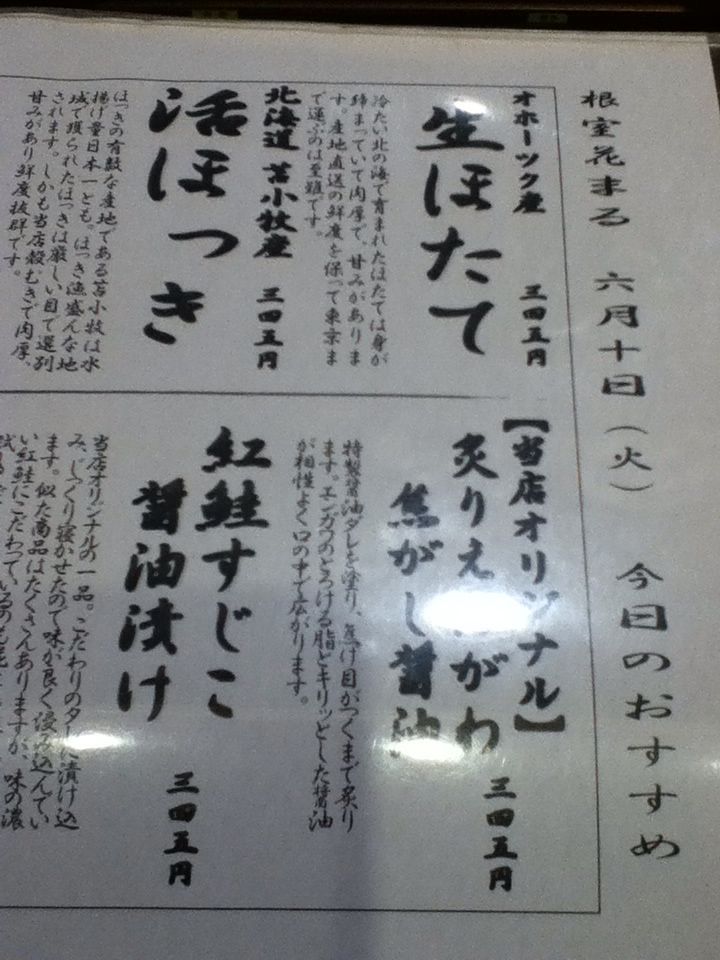 根室花まる 六月十日(火) 今日のおすすめ
オホーツク産 三四五円
生ほたて
冷たい北の海で育まれたほたては身が
締まっていて肉厚で、甘みがありま
す。産地直送の鮮度を保って東京ま
で運ぶのは至難です。
北海道 苫小牧産 三四五円
活ほっき
ほっきの有数な産地である苫小牧は水
揚げ量日本一とも。ほっき漁盛んな地
域で獲られたほっきは厳しい目で選別
されます。しかも当店殻むきで肉厚、
甘みがあり鮮度抜群です。
【当店オリジナル】
炙りえんがわ 三四五円
焦がし醤油
特製醤油ダレを塗り、焦げ目がつくまで炙り
ます。エンガワのとろける脂とキリッとした醤油
が相性よく口の中で広がります。
紅鮭すじこ
醤油漬け 三四五円
当店オリジナルの一品。こだわりのタレに漬け込
み、じっくり寝かせたので味が良く浸み込んでい
ます。似た商品はたくさんありますが、味の濃
い紅鮭にこだわっているのも花